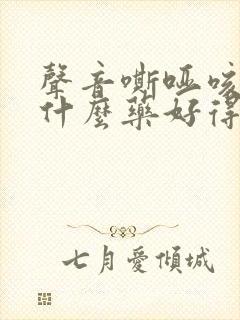 聲音嘶啞咳
什麼藥好得
七月愛傾城